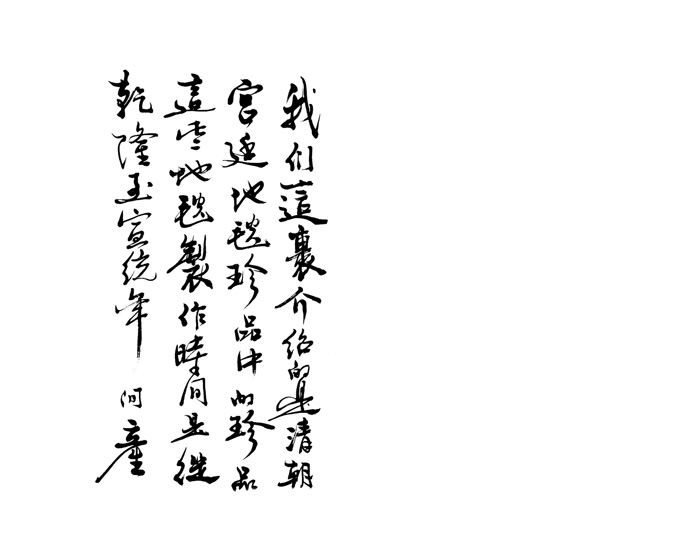 我们這裏介绍的是清朝
宫廷地毯珍品中的珍品
這些地毯製作時间是從
乾隆至宣统年间產